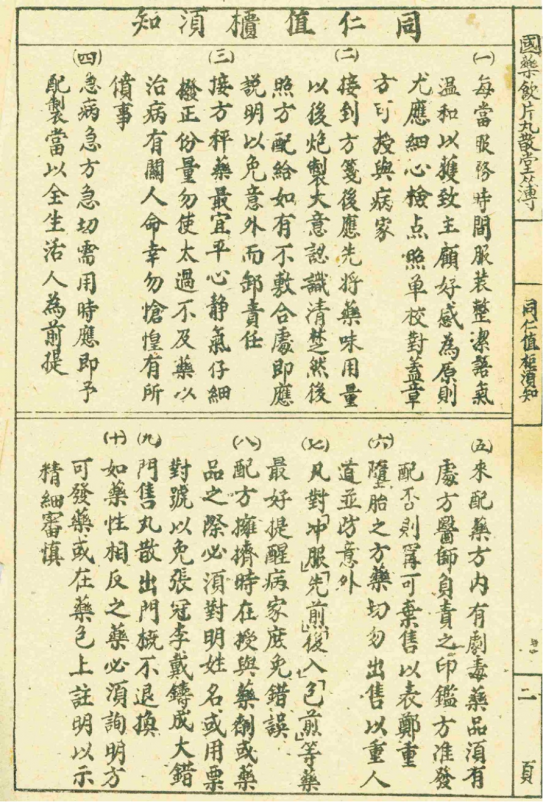 國藥飲片丸散堂簿
同仁值柜湏知
二頁
同仁值櫃湏知
㈠每當服務時間服装整潔語氣
温和以獲致主顧好感為原則
尤應細心檢点照单校對蓋章
方可授與病家
㈡接到方箋後應先将藥味用量
以後炮製大意認識清楚然後
照方配給如有不敷合處即應
説明以免意外而卸責任
㈢接方秤藥最宜平心静氣仔細
撥正份量勿使太過不及藥以
治病有關人命幸勿愴惶有所
僨事
㈣急病急方急切需用時應即予
配製當以全生活人為前提
㈤來配藥方内有劇毒藥品湏有
處方醫師負責之印鑑方准發
配否則寗可棄售以表鄭重
㈥墮胎之方藥切勿出售以重人
道並防意外
㈦凡對「冲服」「先煎」「後入」「包煎」等藥
最好提醒病家庶免錯誤
㈧配方擁擠時在授與藥劑或藥
品之際必湏對明姓名或用票
對號以免張冠李戴鑄成大錯
㈨門售丸散出門概不退換
㈩如藥性相反之藥必湏詢明方
可發藥或在藥包上註明以示
精細審慎